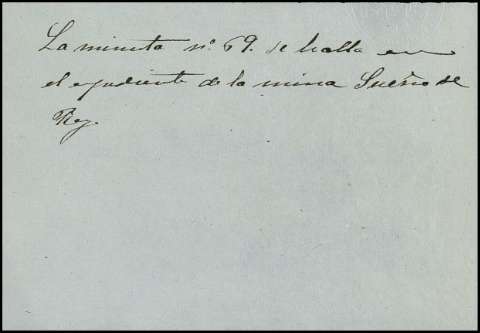 La minuta nº 69. se halla en
el expediente de la mina Sueño de
Rey.